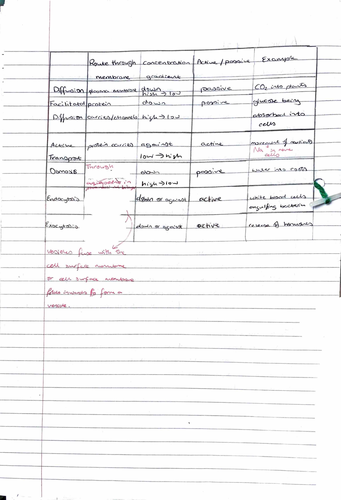 Route through concentration Active/passive Example
membrane gradient
Diffusion plasma membrane down high → low passive CO2 into plants
Facilitated protein down passive glucose being
Diffusion carries/channels high → low absorbed into
cells
Active protein carries against active movement of
Transport low → high
Osmosis Through down passive water into roots
high → low
Endocytosis down or against active white blood cells
engulfing bacteria
Exocytosis down or against active release of hormones
vesicles fuse with the
cell surface membrane
or cell surface membrane
folds inwards to form a
vesicle